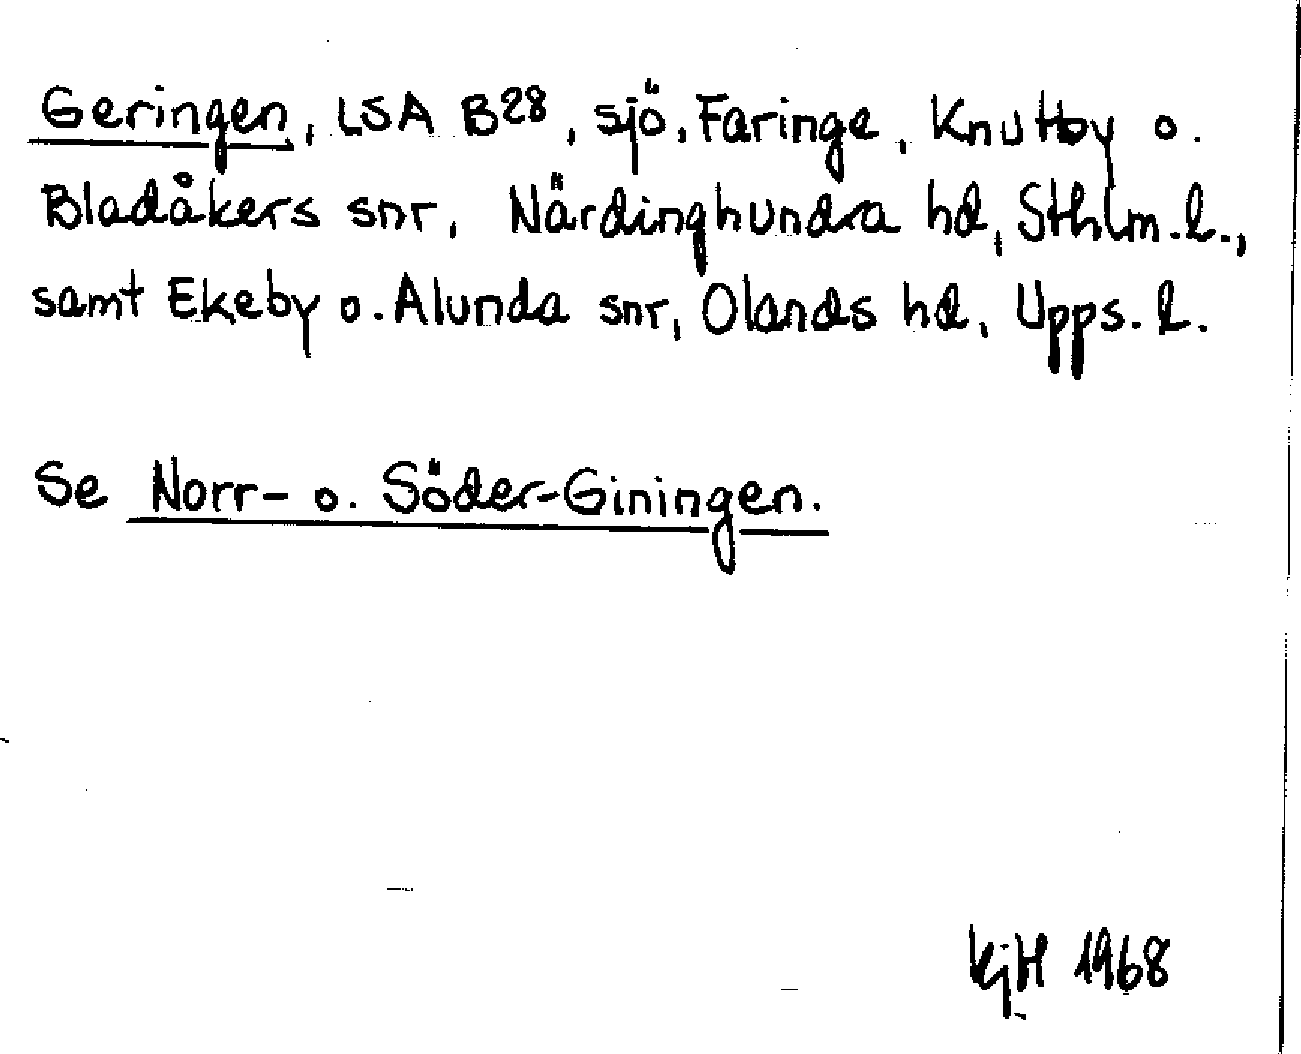 Geringen, LSA B28, sjö, Faringe, Knutby o.
Bladåkers snr, Närdinghundra hd, Sthlm.l.,
samt Ekeby o. Alunda snr, Olands hd, Upps.l.
Se Norr- o. Söder-Giningen.
KjH 1968